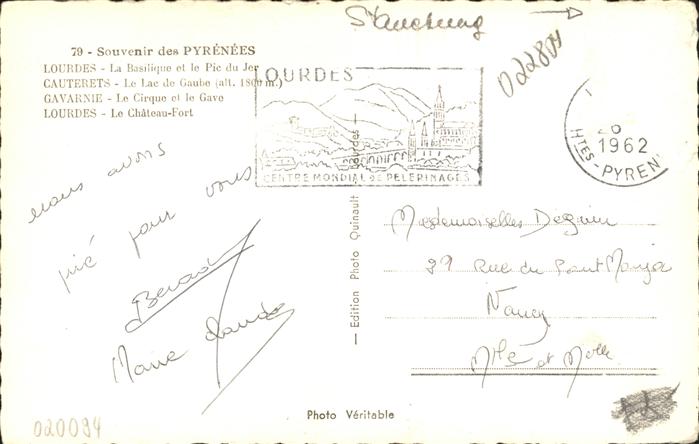 79 - Souvenir des PYRÉNÉES
LOURDES - La Basilique et le Pic du Jer
CAUTERETS - Le Lac de Gaube (alt. 1800 m.)
GAVARNIE - Le Cirque et le Gave
LOURDES - Le Château-Fort
022804
LOURDES
CENTRE MONDIAL DE PELERINAGES
1962
HTES-PYREN
nous avons
prié pour vous
Marie Claude
— Edition Photo Quinault - Lourdes —
Mesdemoiselles
29 Rue du Pont
Nancy
Mthe et Mlle
Photo Véritable
020094